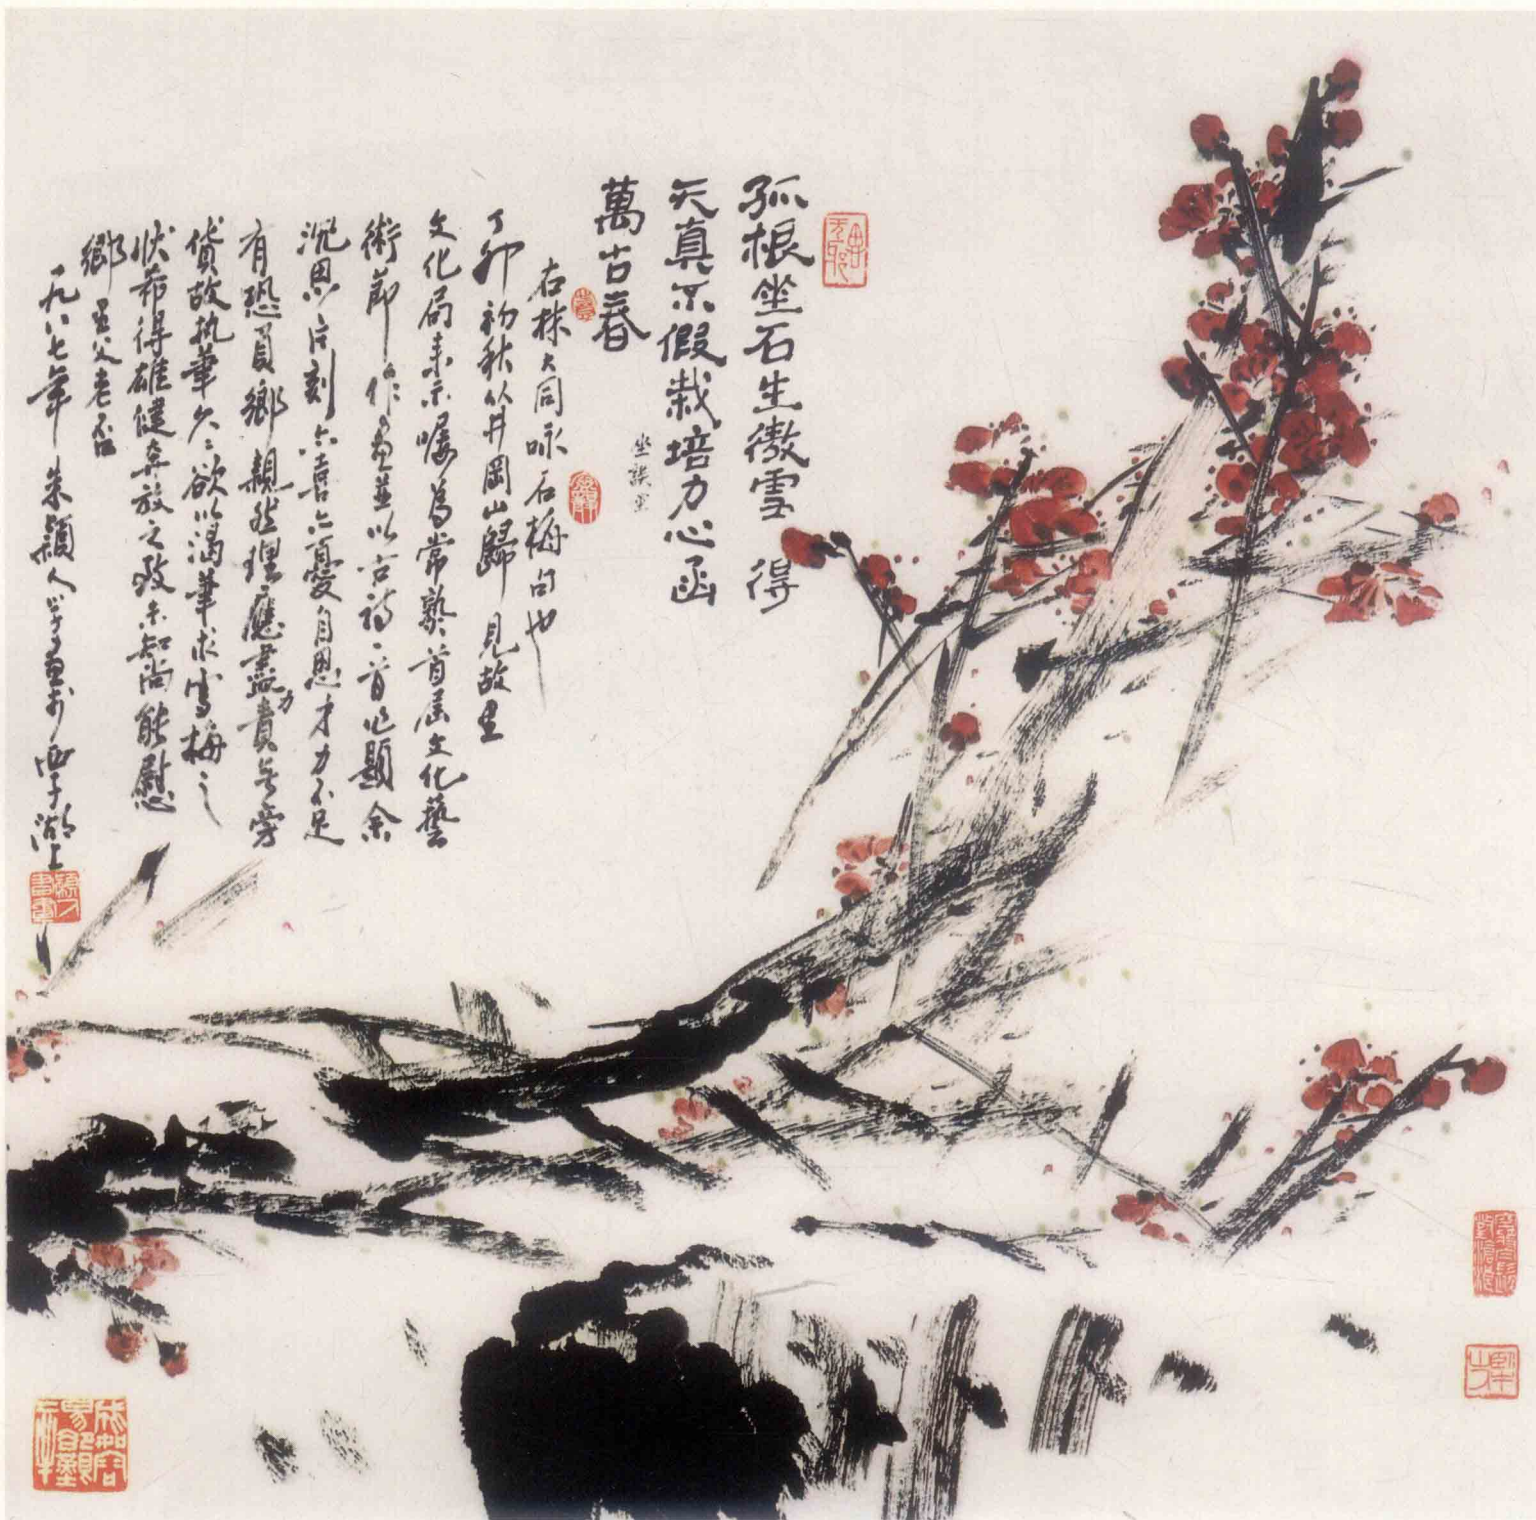 孤根坐石生傲雪 得
天真不假栽培力心函
萬古春
坐誤
右林大同咏石梅句也
丁卯初秋從井岡山歸見故里
文化局来示囑為常熟首屆文化藝
術節作畫並以古詩一首作題余
沉思片刻亦喜亦憂自思才力不足
有恐負鄉親然理應盡力責無旁
貸故執筆久久欲以渴筆求寫梅之
狀希得雄健奔放之致未知尚能慰
鄉里父老否
一九八七年 朱穎人學畫於西子湖上